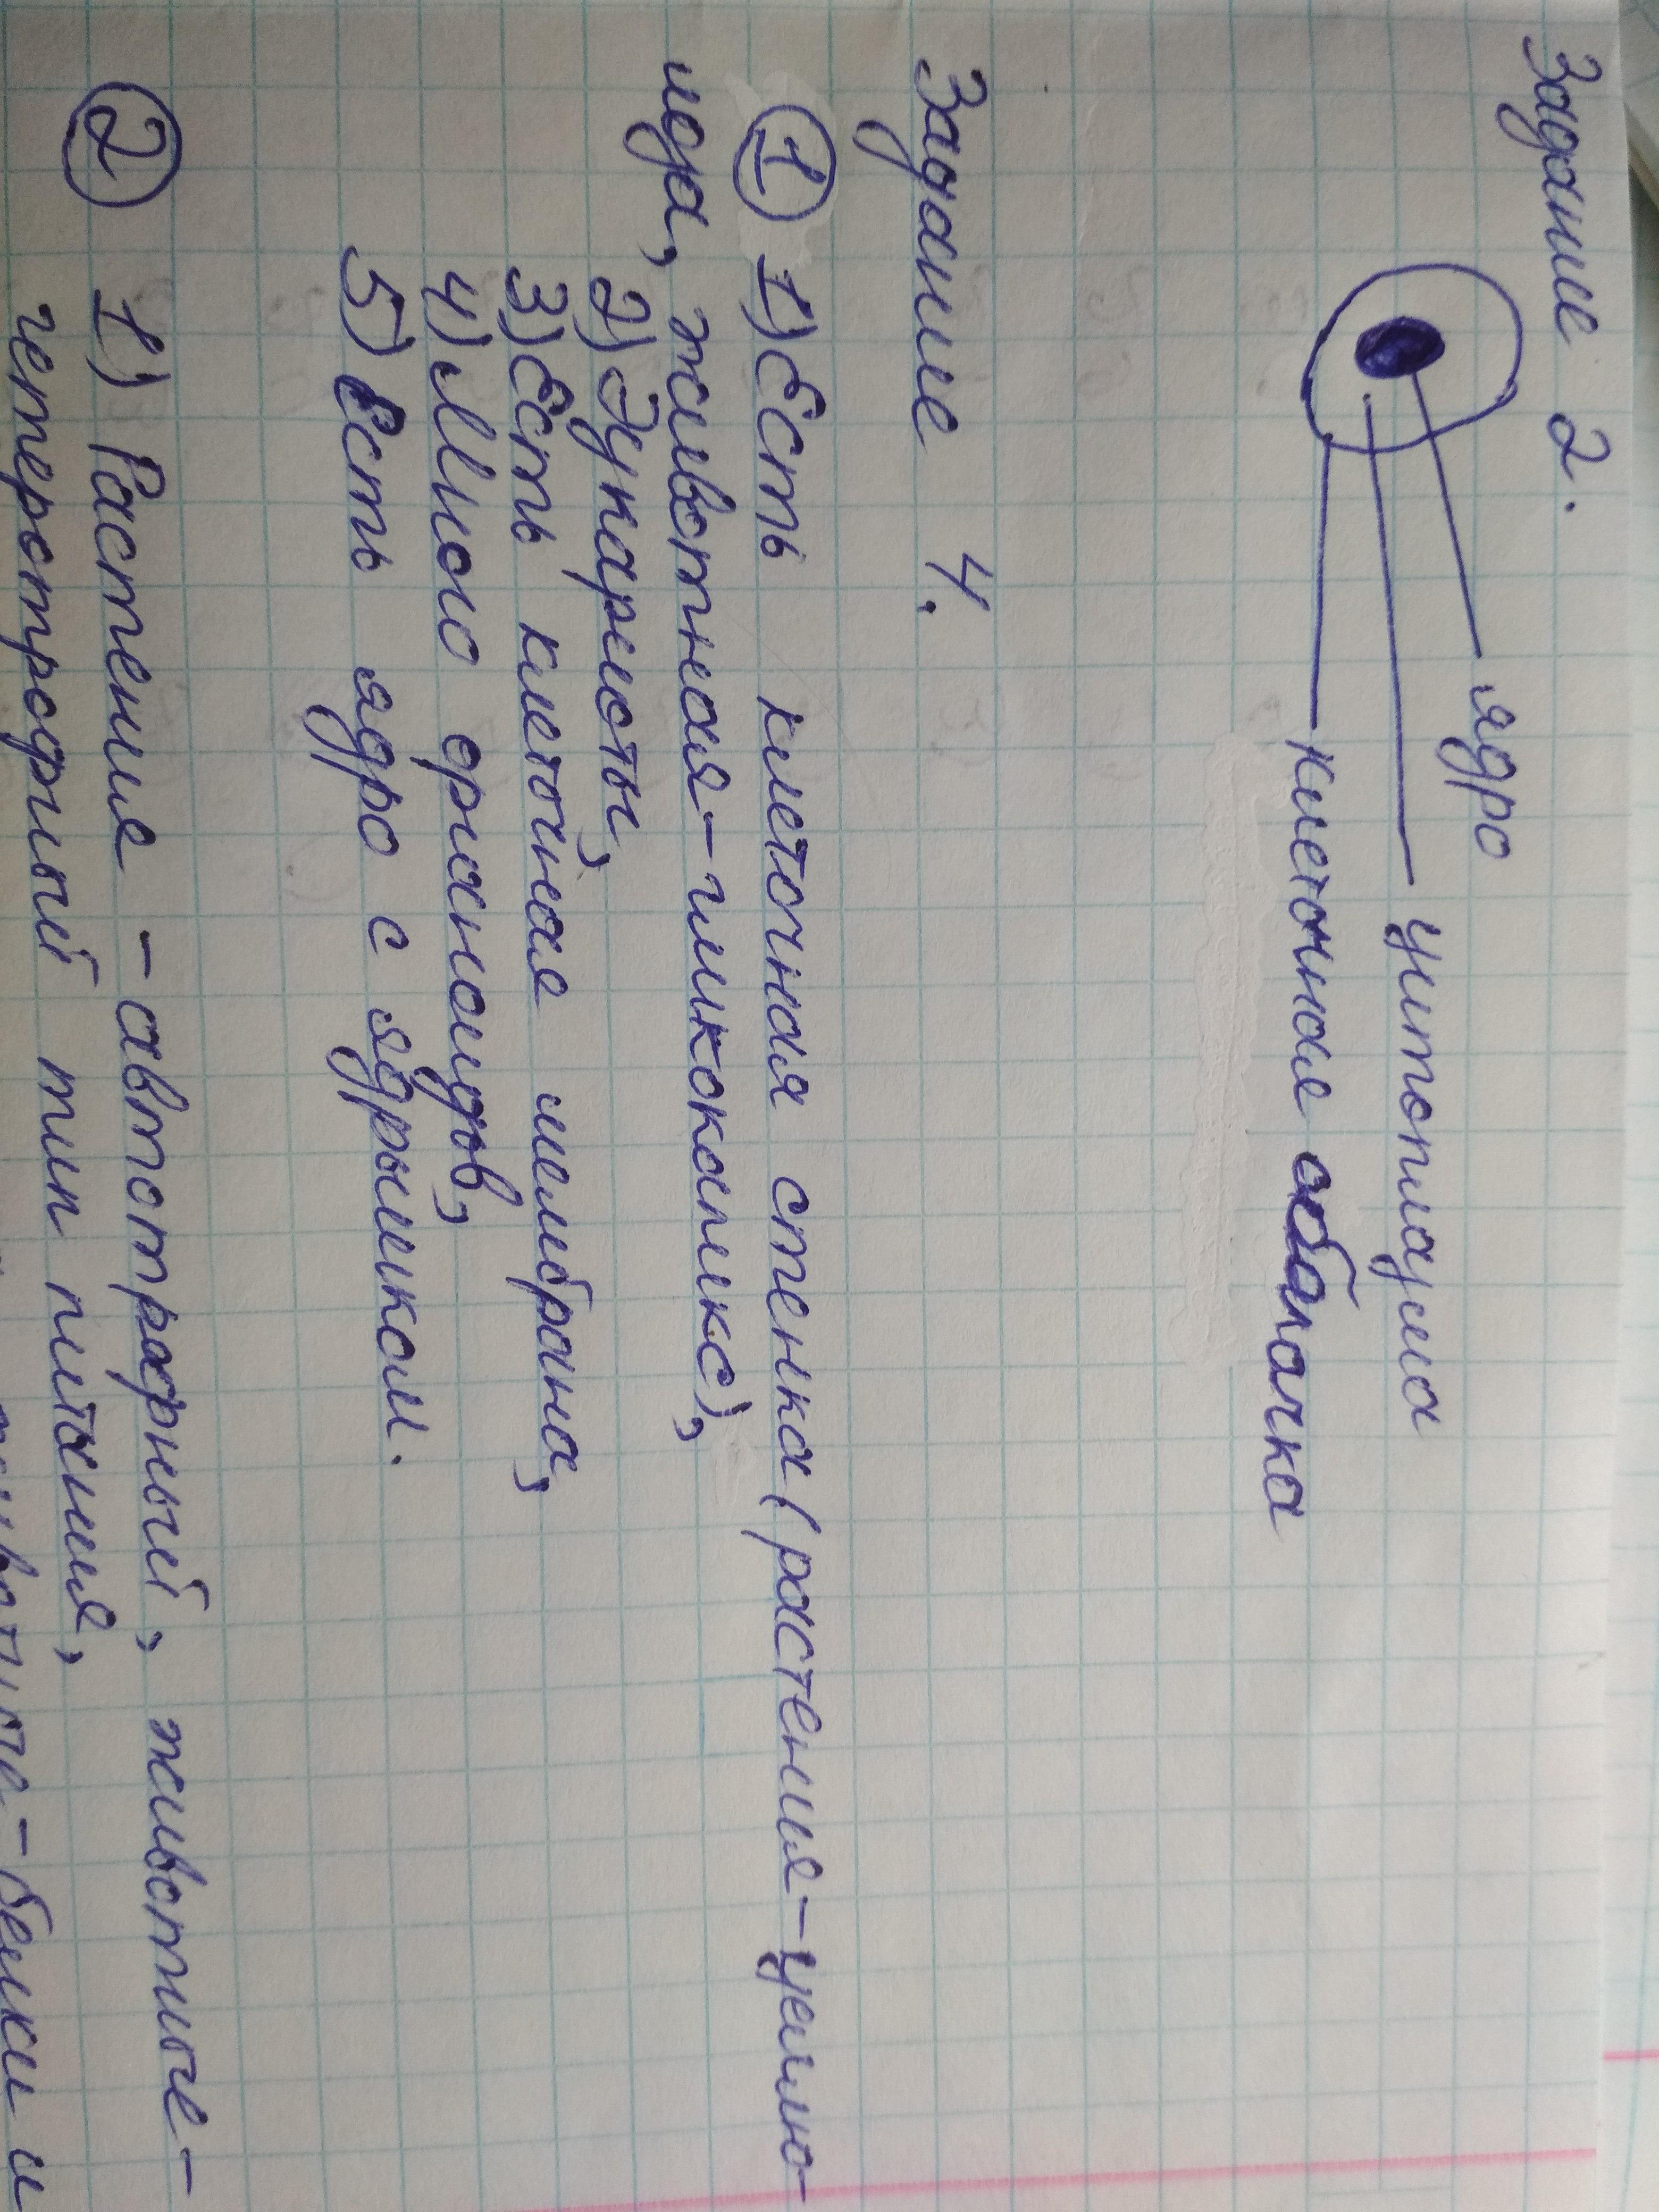 Задание 2.
ядро
цитоплазма
клеточная оболочка
Задание 4.
① 1) Есть клеточная стенка (растения-целлю-
лоза, животная-гликокаликс),
2) Эукариоты,
3) Есть клеточная мембрана,
4) Много органоидов,
5) Есть ядро с ядрышком.
② 1) Растение -автотрафный, животные-
гетеротрофный тип питания,
-белки и